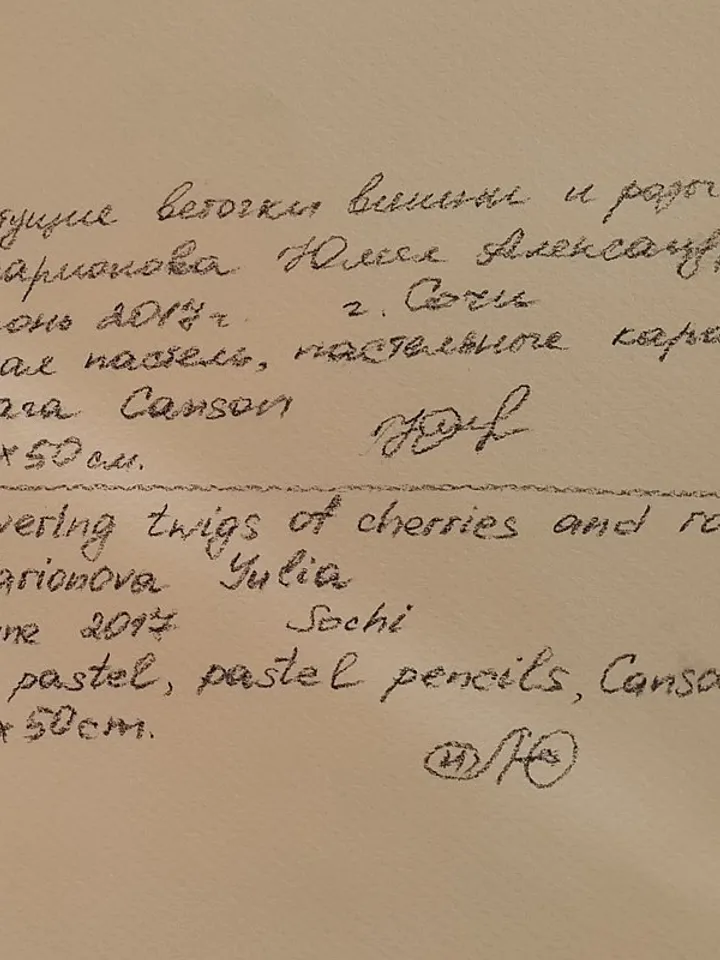 тущие веточки вишни и
арионова Юлия Александ
юнь 2017г. г. Сочи
ая пастель, пастельные кара
ага Canson
x 50 см.
wering twigs of cherries and ro
arionova Yulia
ne 2017 Sochi
pastel, pastel pencils, Canso
x 50cm.